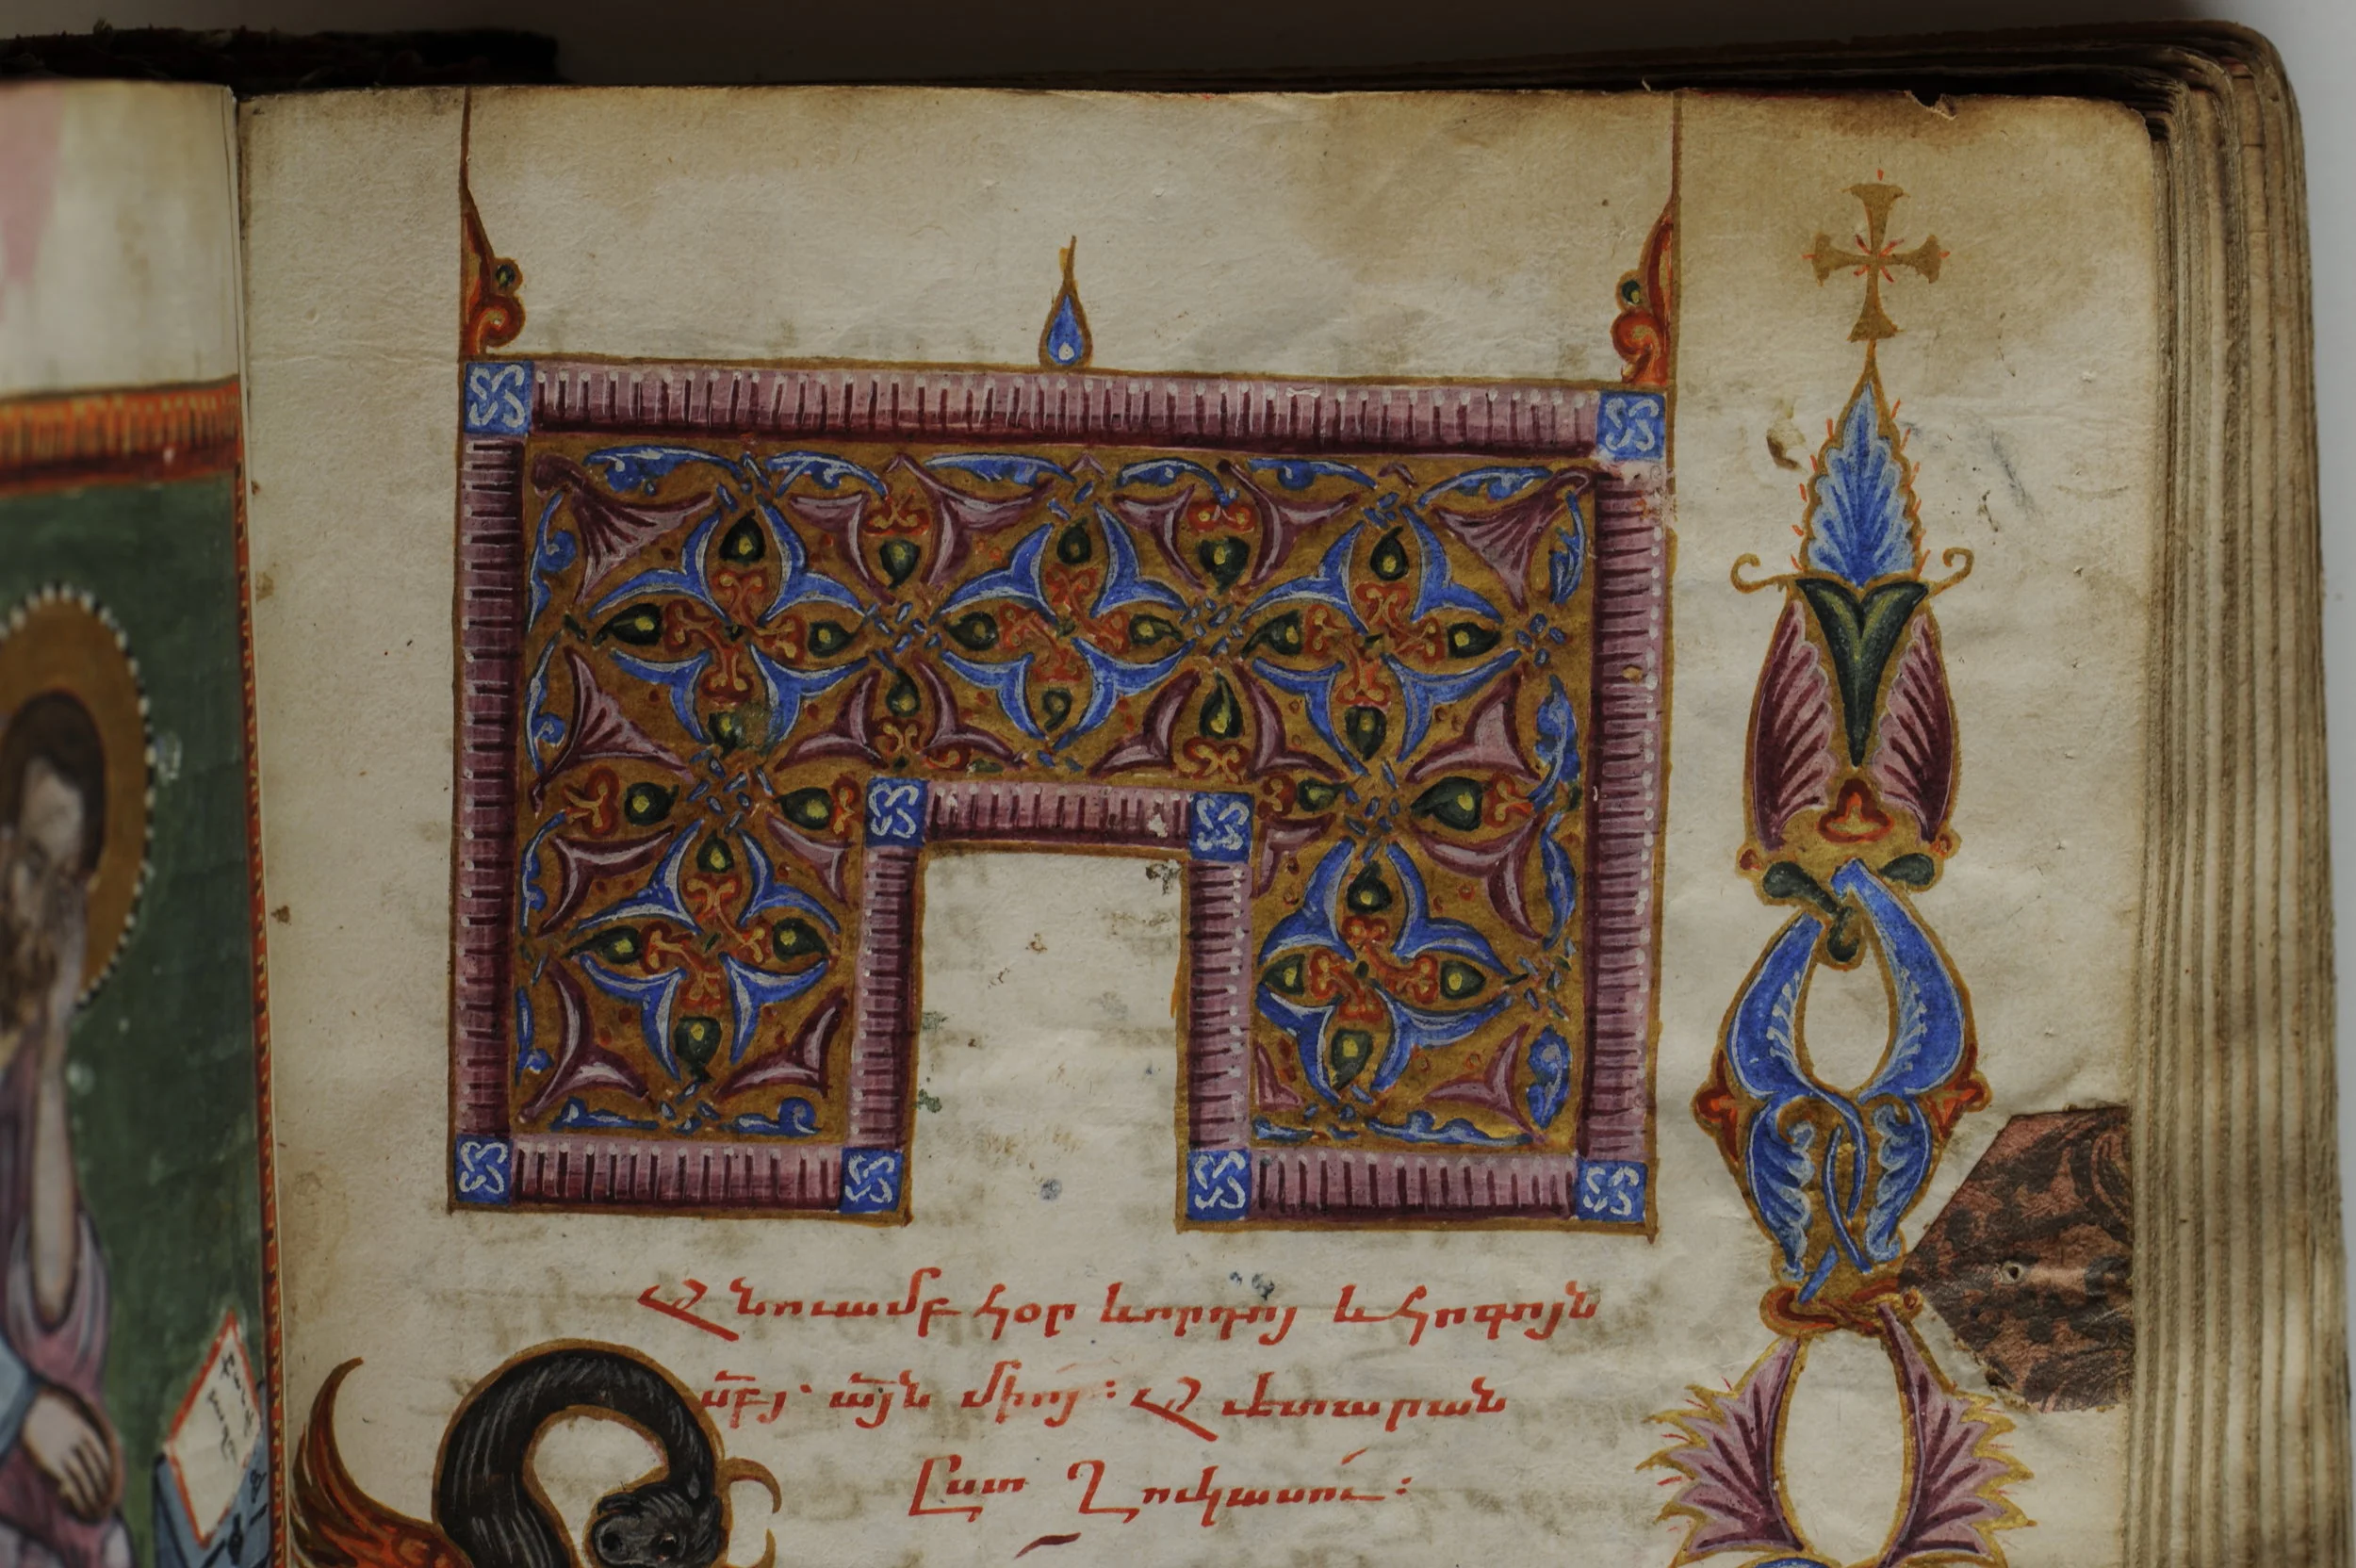 Անուամբ հօր և որդոյ և հոգոյն
սր̅բյ՝ ա̅յն միոյ։ Աւետարան
Ըստ Ղուկասու։